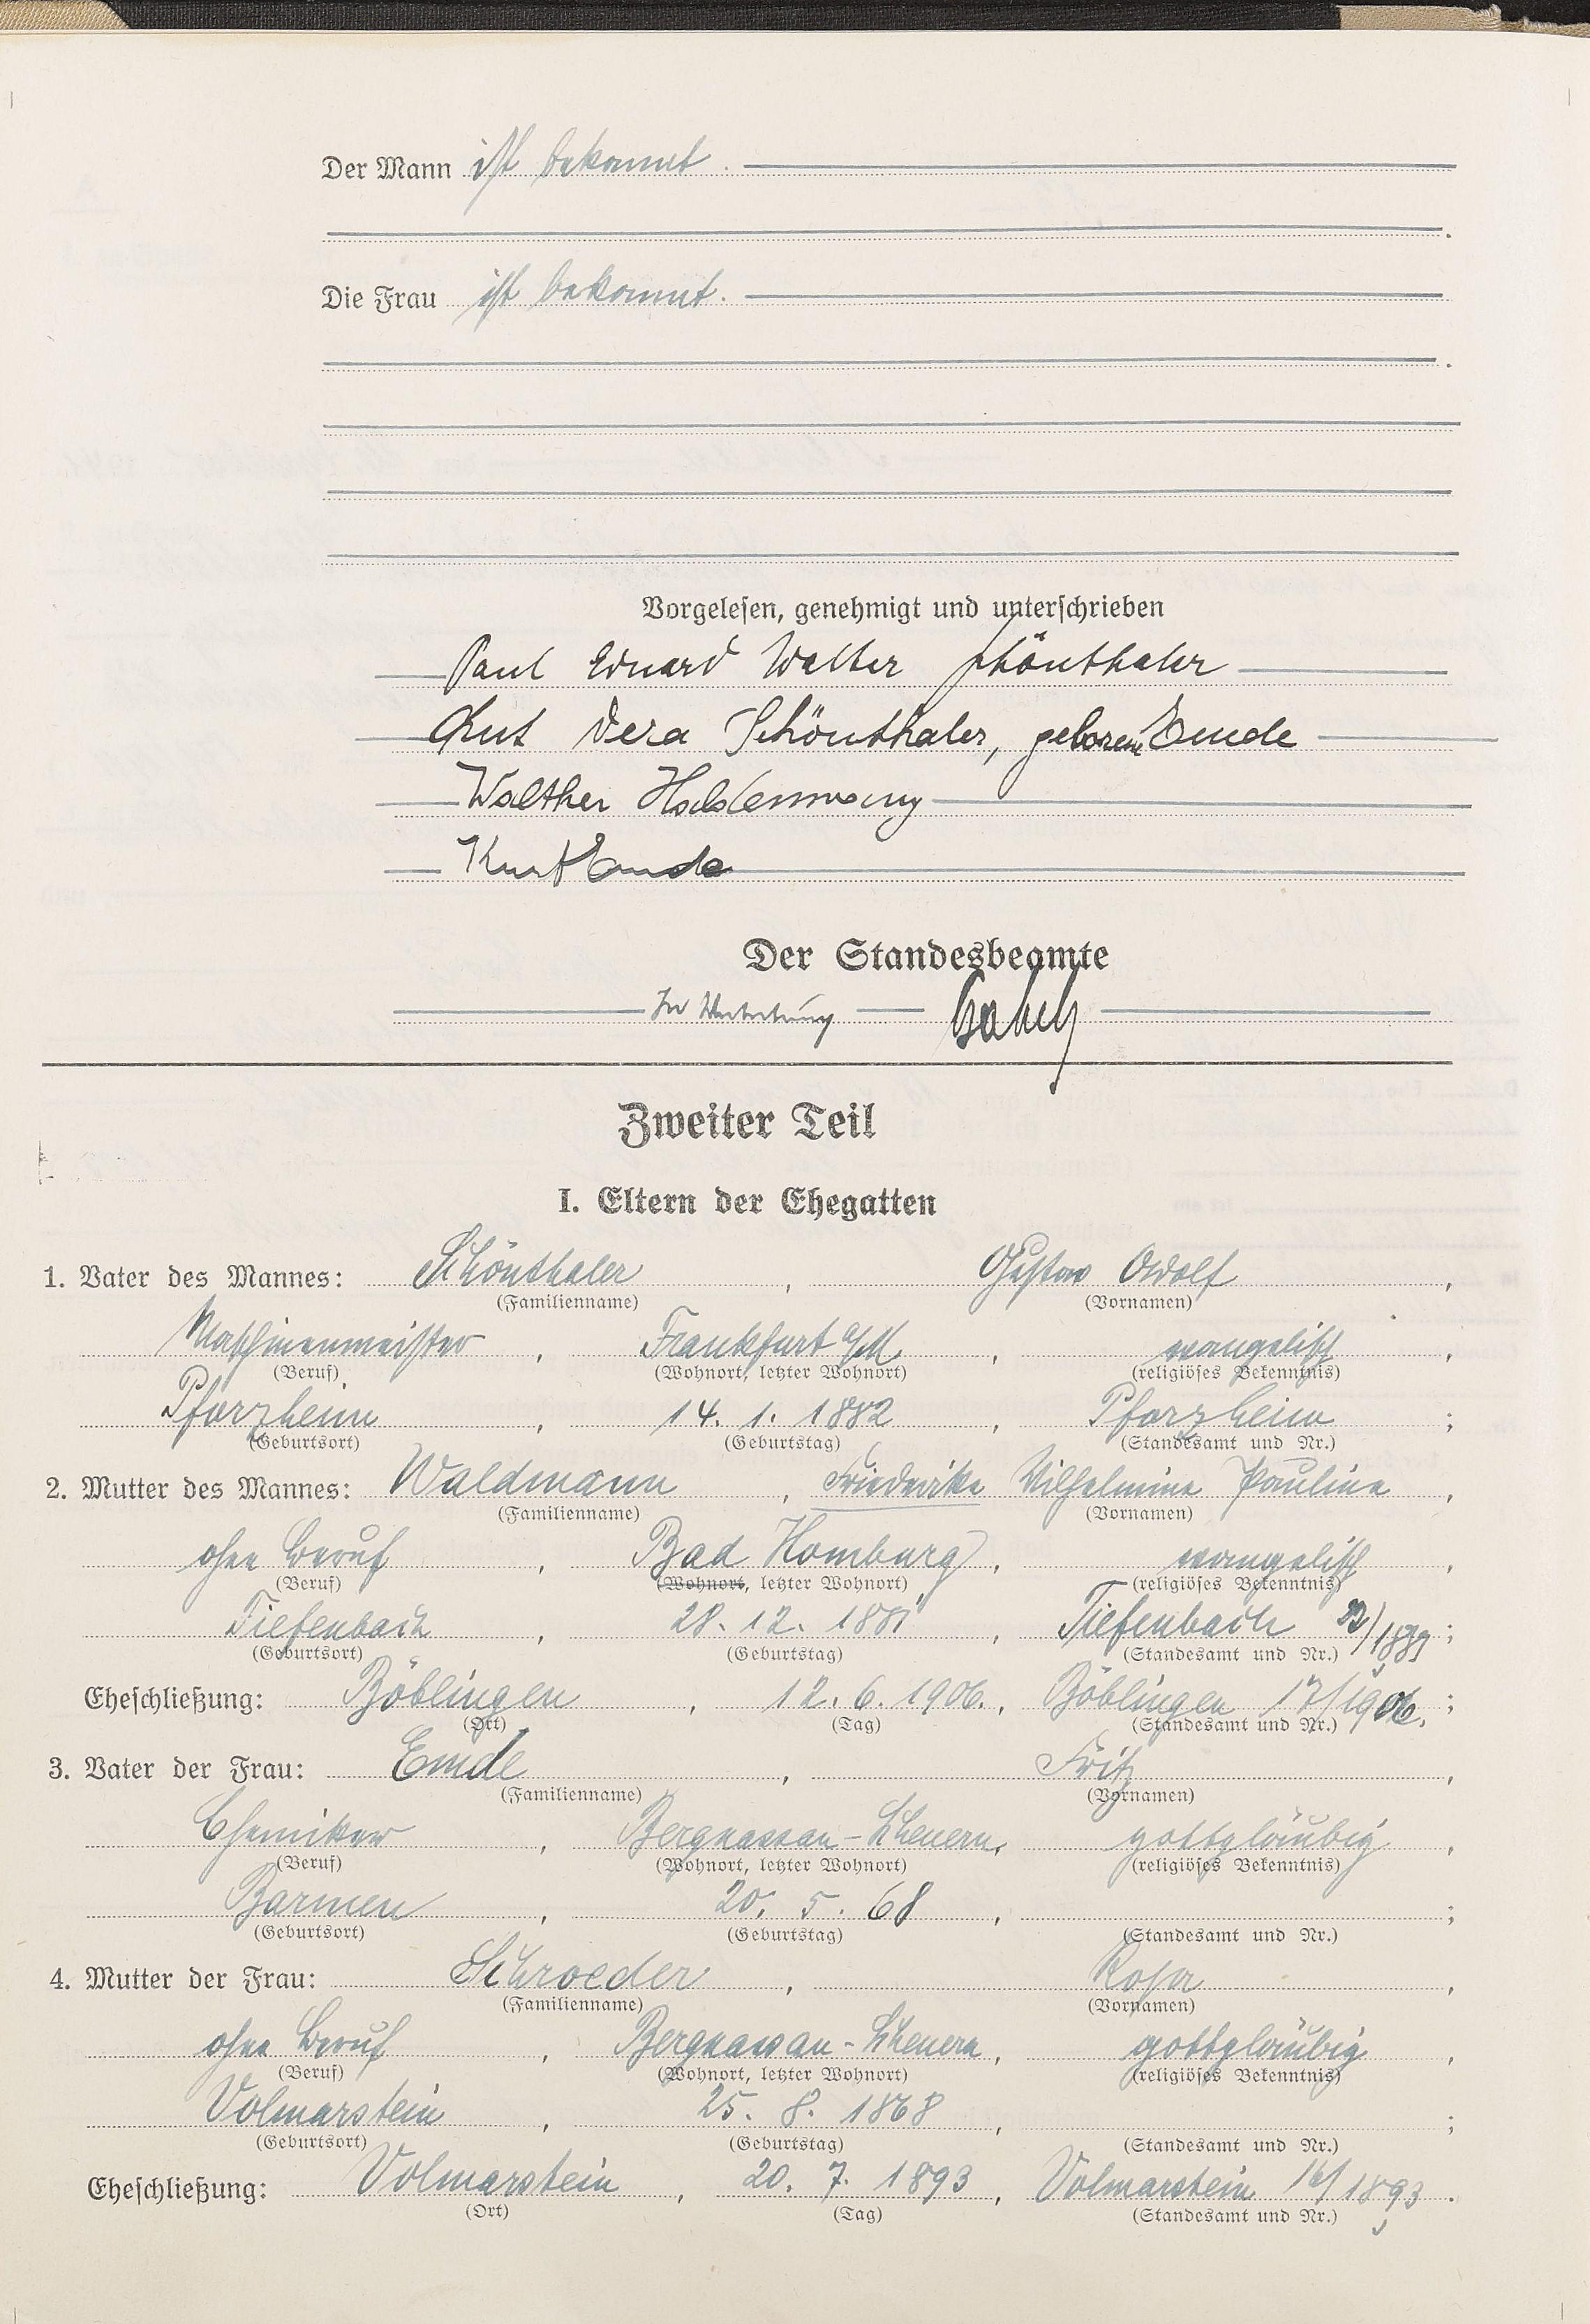 Der Mann ist bekannt.
Die Frau ist bekannt.
Vorgelesen, genehmigt und unterschrieben
Paul Eduard Walter Schönthaler
Rut Vera Schönthaler, geborene Emde
Walther Haldenwang
Kurt Emde
Der Standesbeamte
In Vertretung
Zweiter Teil
I. Eltern der Ehegatten
1. Vater des Mannes: Schönthaler, Gustav Adolf,
(Familienname) (Vornamen)
Maschinenmeister, Frankfurt a/M., evangelisch,
(Beruf) (Wohnort, letzter Wohnort) (religiöses Bekenntnis)
Pforzheim, 14. 1. 1882, Pforzheim;
(Geburtsort) (Geburtstag) (Standesamt und Nr.)
2. Mutter des Mannes: Waldmann, Friederike Wilhelmine Pauline,
(Familienname) (Vornamen)
ohne Beruf, Bad Homburg, evangelisch,
(Beruf) (Wohnort, letzter Wohnort) (religiöses Bekenntnis)
Tiefenbach, 28. 12. 1881, Tiefenbach;
(Geburtsort) (Geburtstag) (Standesamt und Nr.)
Eheschließung: Böblingen, 12. 6. 1906., Böblingen 17/1906.;
(Ort) (Tag) (Standesamt und Nr.)
3. Vater der Frau: Emde, Fritz,
(Familienname) (Vornamen)
Chemiker, Bergnassau-Scheuern, gottgläubig,
(Beruf) (Wohnort, letzter Wohnort) (religiöses Bekenntnis)
Barmen, 20. 5. 68, ;
(Geburtsort) (Geburtstag) (Standesamt und Nr.)
4. Mutter der Frau: Schroeder, Rosa,
(Familienname) (Vornamen)
ohne Beruf, Bergnassau-Scheuern, gottgläubig,
(Beruf) (Wohnort, letzter Wohnort) (religiöses Bekenntnis)
Volmarstein, 25. 8. 1868, ;
(Geburtsort) (Geburtstag) (Standesamt und Nr.)
Eheschließung: Volmarstein, 20. 7. 1893, Volmarstein 16/1893.
(Ort) (Tag) (Standesamt und Nr.)